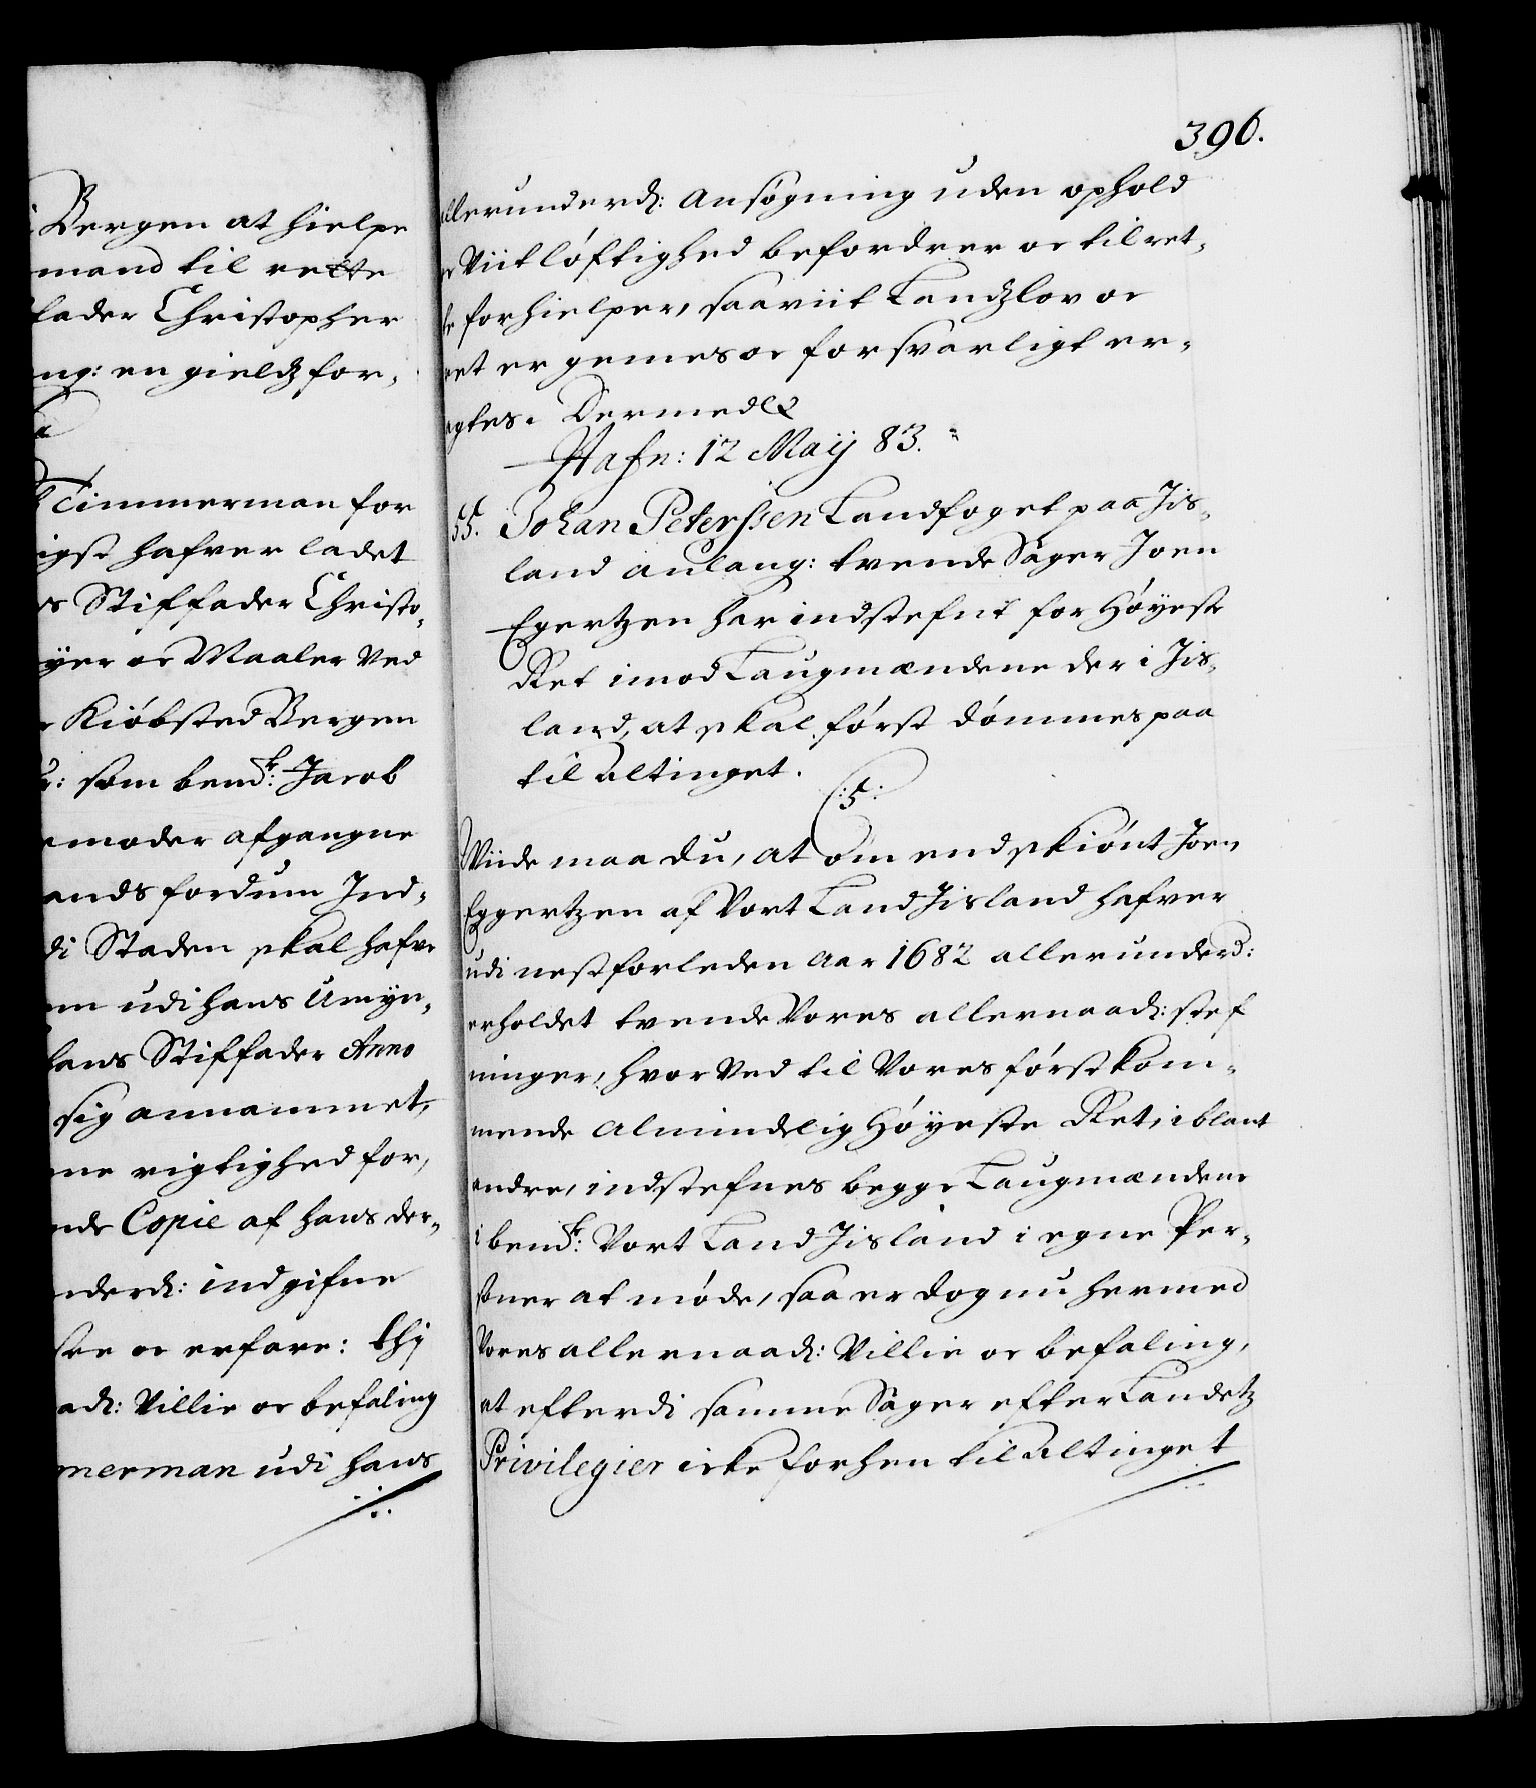 i Bergen at hielpe
mand til rette
fader Christopher
ng: en gieldz for-
Timmerman for
igst hafver ladet
s Stiffader Christo-
yer oc Maaler Ved
Kiöbsted Bergen
som bemdte: Jacob
moder afgangne
ands fordum Ind-
di Staden skal hafve
em udi hans Umyn-
hans Stiffader Anno
sig annammet,
ne rigtighed for,
nde Copie af hans der-
nderd: indgifne
see oc erfare: thj
ad: Villie oc befaling
merman udi hans
396.
allerunderd: Ansøgning uden ophold
er Viitløftighed befordrer oc til ret-
te forhielper, saaviit Landzlov oc
ret er gemes oc forsvarligt er-
agtes. Dermed &c
Hafn: 12 Maij 83.
55. Johan Peterssen Landfoget paa Jis-
land anlang: tvende Sager Joen
Egertzen har indstefnt for Høyeste
Ret imod Laugmændene der i Jis-
land, at skal først dömmes paa
til Altinget.
C:5:
Viide maa du, at omendskiönt Joen
Eggertzen af Vort Land Jisland hafver
udi nestforleden Aar 1682 allerunderd:
erholdet tvende Vores allernaad: stef
ninger, hvor Ved til Vores førstkom-
mende Almindelig Høyeste Ret, iblant
andre, indstefnes begge Laugmændene
i bemdte: Vort Land Jisland i egne Per-
soner at møde, saa er dog nu hermed
Vores allernaad: Villie oc befaling,
at efterdi samme Sager efter Landetz
Privilegier icke forhen til Altinget